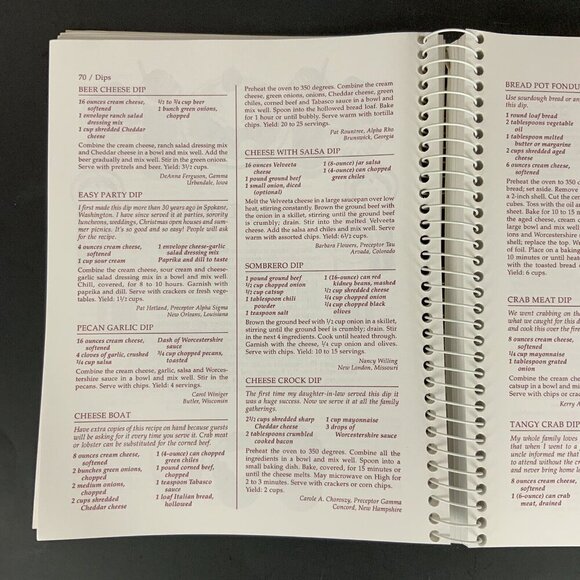 70 / Dips
BEER CHEESE DIP
16 ounces cream cheese,
softened
1 envelope ranch salad
dressing mix
1 cup shredded Cheddar
cheese
1/2 to 3/4 cup beer
1 bunch green onions,
chopped
Combine the cream cheese, ranch salad dressing mix
and Cheddar cheese in a bowl and mix well. Add the
beer gradually and mix well. Stir in the green onions.
Serve with pretzels and beer. Yield: 3 1/2 cups.
DeAnna Ferguson, Gamma
Urbendale, Iowa
EASY PARTY DIP
I first made this dip more than 30 years ago in Spokane,
Washington. I have since served it at parties, sorority
luncheons, weddings, Christmas open houses and sum-
mer picnics. It's so good and so easy! People will ask
for the recipe.
4 ounces cream cheese,
softened
1 cup sour cream
1 envelope cheese-garlic
salad dressing mix
Paprika and dill to taste
Combine the cream cheese, sour cream and cheese-
garlic salad dressing mix in a bowl and mix well.
Chill, covered, for 8 to 10 hours. Garnish with
paprika and dill. Serve with crackers or fresh vege-
tables. Yield: 1 1/2 cups.
Pat Hotland, Preceptor Alpha Sigma
New Orleans, Louisiana
PECAN GARLIC DIP
16 ounces cream cheese,
softened
4 cloves of garlic, crushed
1/4 cup salsa
Dash of Worcestershire
sauce
3/4 cup chopped pecans,
toasted
Combine the cream cheese, garlic, salsa and Worces-
tershire sauce in a bowl and mix well. Stir in the
pecans. Serve with chips. Yield: 4 servings.
Carol Winiger
Butler, Wisconsin
CHEESE BOAT
Have extra copies of this recipe on hand because guests
will be asking for it every time you serve it. Crab meat
or lobster can be substituted for the corned beef.
8 ounces cream cheese,
softened
2 bunches green onions,
chopped
2 medium onions,
chopped
2 cups shredded
Cheddar cheese
1 (4-ounce) can chopped
green chiles
1 pound corned beef,
chopped
1 teaspoon Tabasco
sauce
1 loaf Italian bread,
hollowed
Preheat the oven to 350 degrees. Combine the cream
cheese, green onions, onions, Cheddar cheese, green
chiles, corned beef and Tabasco sauce in a bowl and
mix well. Spoon into the hollowed bread loaf. Bake
for 1 hour or until bubbly. Serve warm with tortilla
chips. Yield: 20 to 25 servings.
Pat Rountree, Alpha Rho
Brunswick, Georgia
CHEESE WITH SALSA DIP
16 ounces Velveeta
cheese
1 pound ground beef
1 small onion, diced
(optional)
1 (8-ounce) jar salsa
1 (4-ounce) can chopped
green chiles
Melt the Velveeta cheese in a large saucepan over low
heat, stirring constantly. Brown the ground beef with
the onion in a skillet, stirring until the ground beef
is crumbly; drain. Stir into the melted Velveeta
cheese. Add the salsa and green chiles. Serve
warm with assorted chips. Yield: 6 1/2 cups.
Barbara Flowers, Preceptor Tau
Arvada, Colorado
SOMBRERO DIP
1 pound ground beef
1/2 cup chopped onion
1/2 cup catsup
1 tablespoon chili
powder
1 teaspoon salt
1 (16-ounce) can red
kidney beans, mashed
1/2 cup shredded cheese
1/4 cup chopped onion
1/4 cup chopped black
olives
Brown the ground beef with 1/2 cup onion in a skillet,
stirring until the ground beef is crumbly; drain. Stir
in the next 4 ingredients. Cook until heated through.
Garnish with the cheese, 1/4 cup onion and olives.
Serve with chips. Yield: 10 to 15 servings.
Nancy Willing
New London, Missouri
CHEESE CROCK DIP
The first time my daughter-in-law served this dip it
was a huge success. Now we serve it at all the family
gatherings.
2 1/2 cups shredded sharp
Cheddar cheese
2 tablespoons crumbled
cooked bacon
1 cup mayonnaise
3 drops of
Worcestershire sauce
Preheat the oven to 350 degrees. Combine all the
ingredients in a bowl and mix well. Spoon into a
small baking dish. Bake, covered, for 15 minutes or
until the cheese melts. May microwave on High for
2 to 3 minutes. Serve with crackers or corn chips.
Yield: 2 cups.
Carole A. Chorouzy, Preceptor Gamma
Concord, New Hampshire
BREAD POT FONDU
Use sourdough bread or an
this dip.
1 round loaf bread
2 tablespoons vegetable
oil
1 tablespoon melted
butter or margarine
2 cups shredded aged
cheese
6 ounces cream cheese,
softened
Preheat the oven to 350
bread; set aside. Remove
a 2-inch shell. Cut the
cubes. Toss with the oil a
sheet. Bake for 10 to 15
cheese, cream cheese and
large bowl and mix well
ions and Worcestershire
shell; replace the top. W
of foil. Place on a baking
10 minutes or until heated
with the toasted bread
Yield: 6 cups.
CRAB MEAT DIP
We went crabbing on the
what we caught for this d
and cook this over the fire
8 ounces cream cheese,
softened
1/4 cup mayonnaise
1 tablespoon grated
onion
Combine the cream chees
catsup in a bowl and mix
Serve with chips or crack
Kerry A
TANGY CRAB DIP
My whole family loves
that when I went to a
uncle informed me that I
to attend without the cra
and never bring home le
8 ounces cream cheese,
softened
1 (6-ounce) can crab
meat, drained